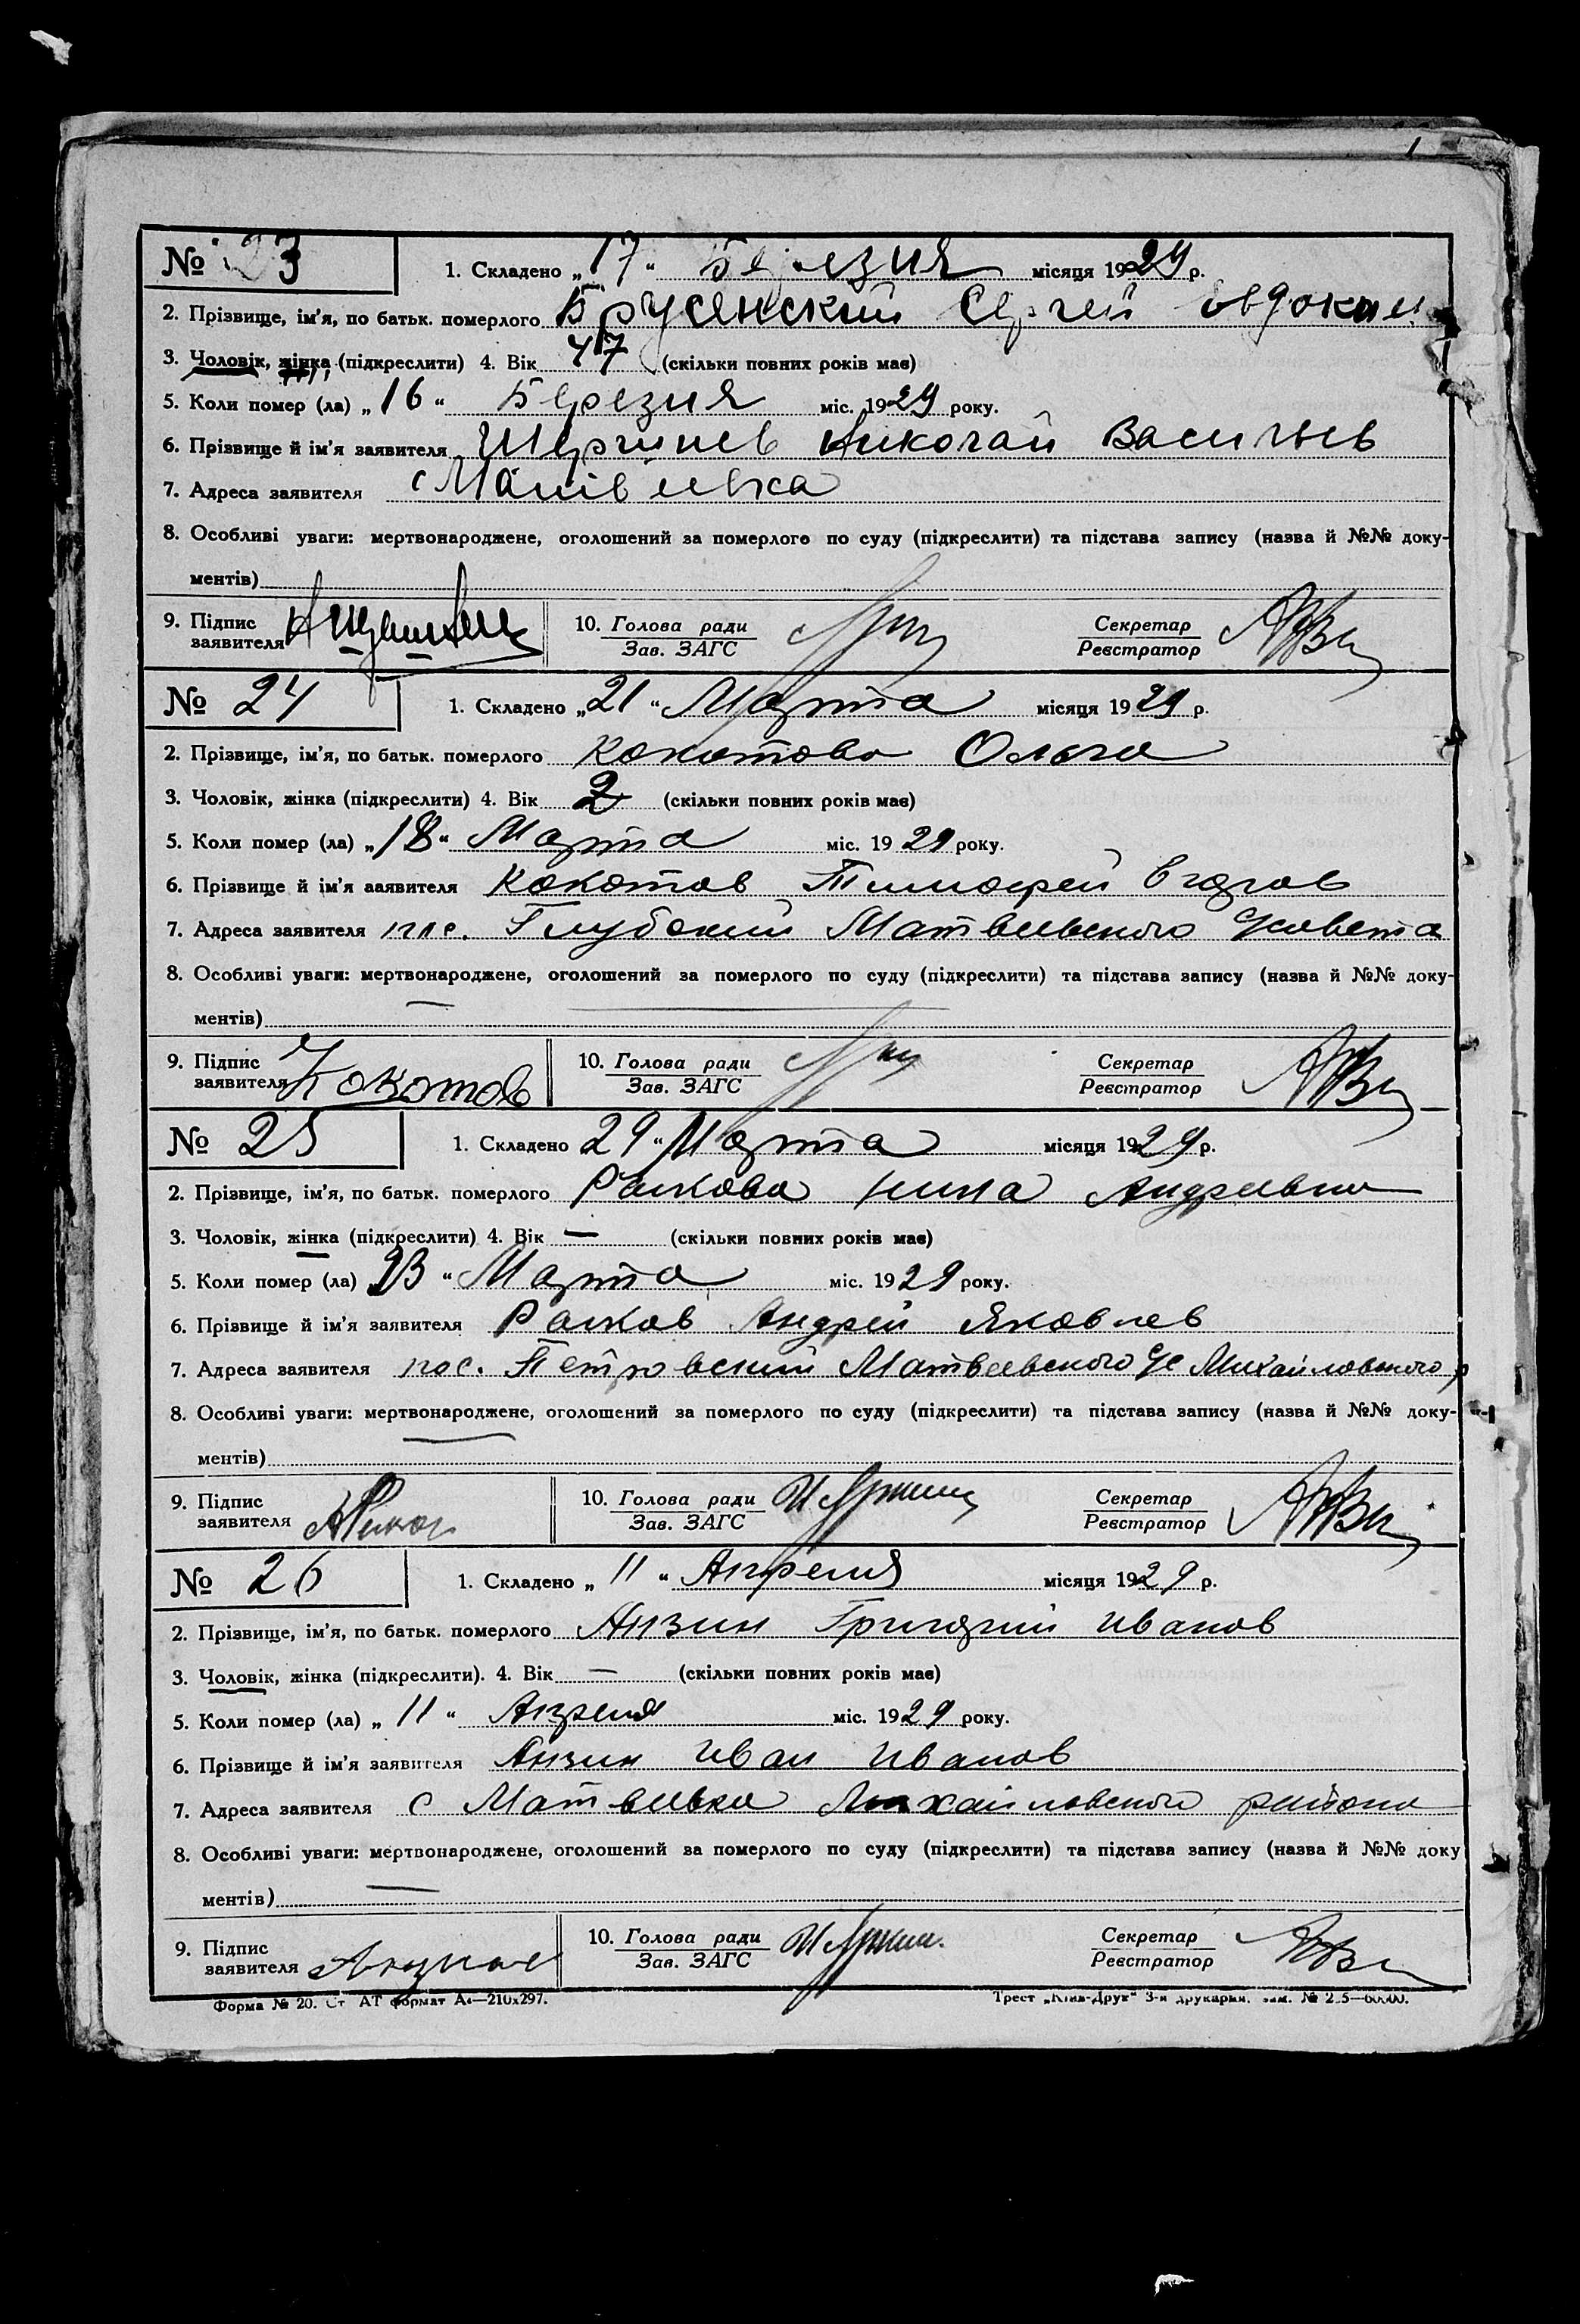 № 23 1. Складено „17“ Березня місяця 1929 р.
2. Прізвище, ім’я, по батьк. померлого Брусенский Сергей Овдоким
3. Чоловік, жінка (підкреслити) 4. Вік 47 (скільки повних років має)
5. Коли помер (ла) „16“ Березня міс. 1929 року.
6. Прізвище й ім’я заявителя Николай Васильев
7. Адреса заявителя с
8. Особливі уваги: мертвонароджене, оголошений за померлого по суду (підкреслити) та підстава запису (назва й №№ доку-
ментів)
9. Підпис заявителя 10. Голова ради Зав. ЗАГС Секретар Реєстратор
№ 24 1. Складено „21“ Марта місяця 1929 р.
2. Прізвище, ім’я, по батьк. померлого Кокотова Ольга
3. Чоловік, жінка (підкреслити) 4. Вік 2 (скільки повних років має)
5. Коли помер (ла) „18“ Марта міс. 1929 року.
6. Прізвище й ім’я заявителя Кокотов Тимофей Егоров
7. Адреса заявителя пос. Глубокий Матвеевского с/совета
8. Особливі уваги: мертвонароджене, оголошений за померлого по суду (підкреслити) та підстава запису (назва й №№ доку-
ментів)
9. Підпис заявителя Кокотов 10. Голова ради Зав. ЗАГС Секретар Реєстратор
№ 25 1. Складено 29“ Марта місяця 1929 р.
2. Прізвище, ім’я, по батьк. померлого Раткова Нина Андреевна
3. Чоловік, жінка (підкреслити) 4. Вік — (скільки повних років має)
5. Коли помер (ла) 23“ Марта міс. 1929 року.
6. Прізвище й ім’я заявителя Андрей Яковлев
7. Адреса заявителя пос. Петровский Матвеевского с/с Михайловского р
8. Особливі уваги: мертвонароджене, оголошений за померлого по суду (підкреслити) та підстава запису (назва й №№ доку-
ментів)
9. Підпис заявителя 10. Голова ради Зав. ЗАГС Секретар Реєстратор
№ 26 1. Складено „11“ Апреля місяця 1929 р.
2. Прізвище, ім’я, по батьк. померлого Анзин Григорий Иванов
3. Чоловік, жінка (підкреслити). 4. Вік — (скільки повних років має)
5. Коли помер (ла) „11“ Апреля міс. 1929 року.
6. Прізвище й ім’я заявителя Анзин Иван Иванов
7. Адреса заявителя с Матвеевка Михайловского района
8. Особливі уваги: мертвонароджене, оголошений за померлого по суду (підкреслити) та підстава запису (назва й №№ доку
ментів)
9. Підпис заявителя 10. Голова ради Зав. ЗАГС Секретар Реєстратор
Форма № 20. Ст АТ формат А4—210х297. Трест „Київ-Друк“ 3-я друкарня.